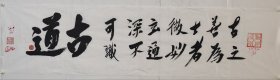 古之
善為
士者
微妙
玄通
深不
可識
古道